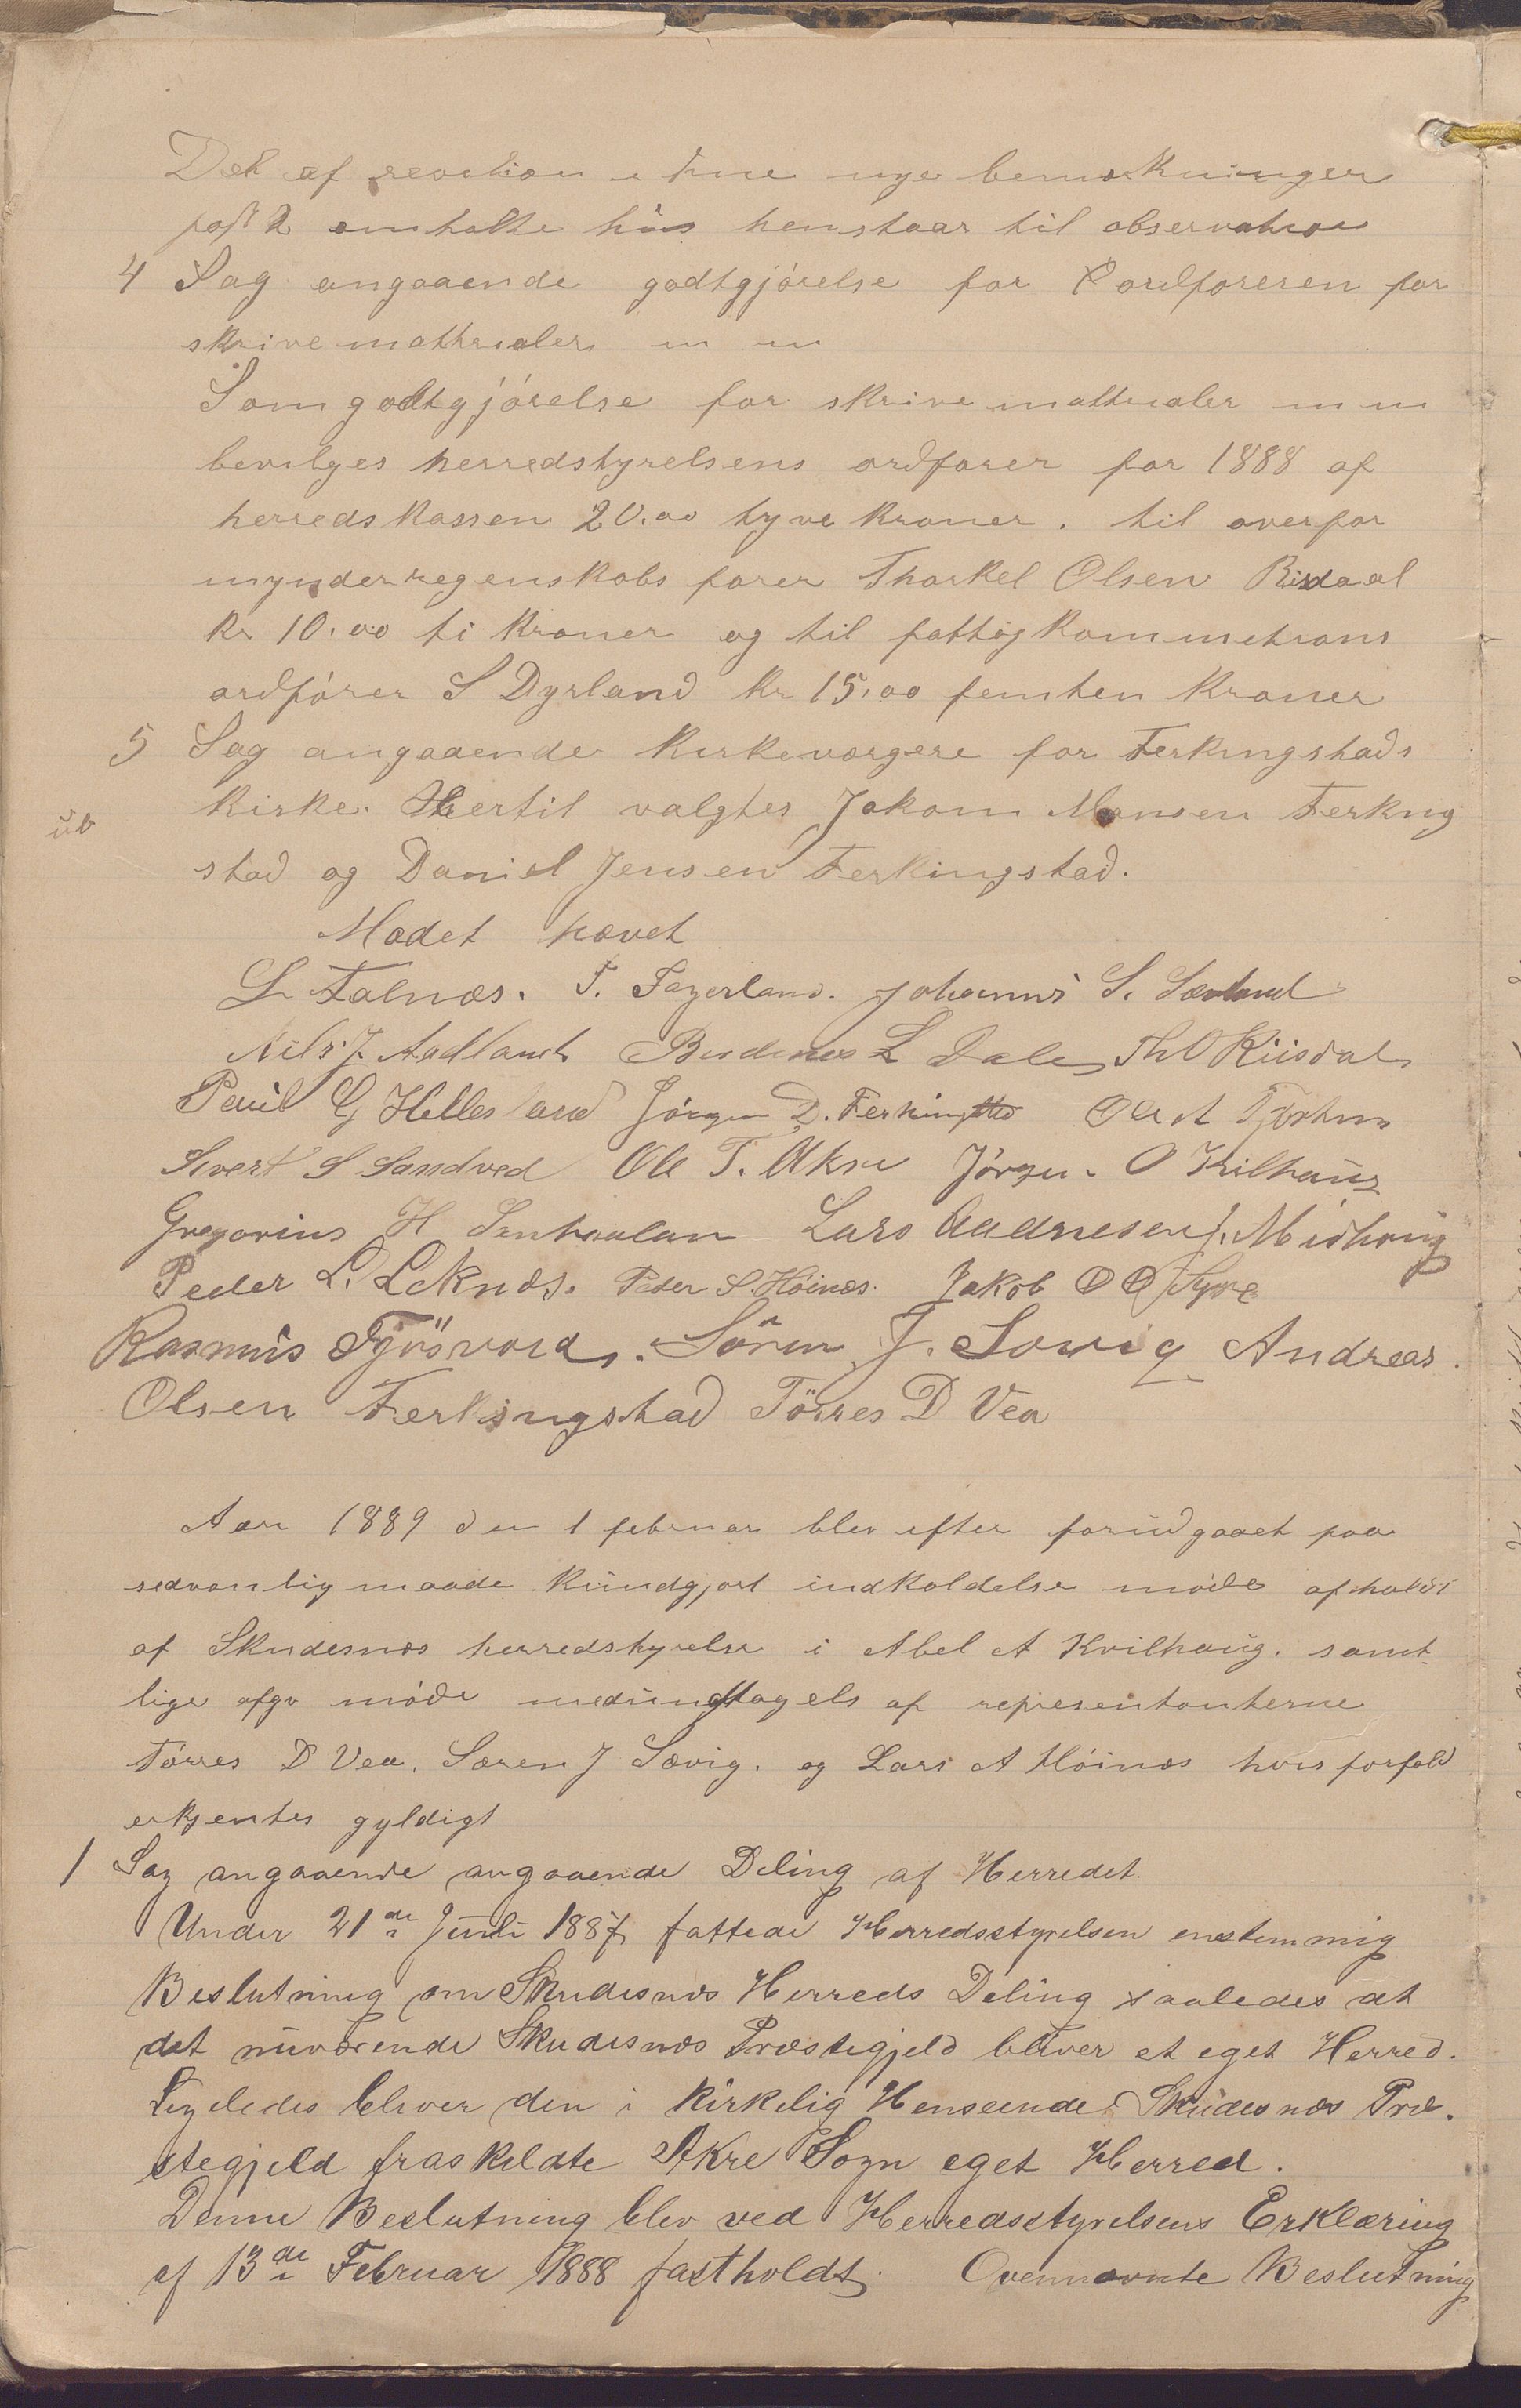 Det af revition i dine nye bemerkninger
post 2 omhalte hus henstaar til observation
4 Sag angaaende godtgjórelse for Ordforeren for
skrivematterialer m m
Som godtgjórelse for skrivematterialer m m
bevilges herredstyrelsens ordforer for 1888 af
herredskassen 20.00 tyve kroner. til overfor
mynderregenskabs forer Thorkel Olsen Risdaal
kr 10.00 ti kroner og til fattigkommetions
ordfórer S Dyrland kr 15.00 femten kroner
5 Sag angaaende kirkeværgere for Ferkingstads
kirke. Hertil valgtes Jakom Monsen Ferking
ut
stad og Daniel Jensen Ferkingstad.
Modet hævet
L Falnæs. T. Fagerland. Johannes S. Sævland
Nils J. Aadland L Dale Th O Riisdal
Paul G Hellesland Jórgen D. Ferkingstad Ole A
Sivert S Sandved Ole T. Akre Jórgen O Kvilhaug
Gregorius H Lars Aadnesen J. Midhaug
Peder L. Leknæs. Peder S. Høinæs. Jakob O O Syre
Rasmus Tjösvold. Sören J. Sævig Andreas
Olsen Ferkingstad Törres D Vea
Aar 1889 den 1 februar blev efter forudgaaet paa
sedvanlig maade kundgjort indkaldelse móde afholdt
af Skudesnæs herredstyrelse i Abel A Kvilhaug. samt-
lige afgv móde medundtagels af representanterne
Tórres D Vea. Søren J Sævig. og Lars A Hóinæs hvis forfald
erkjentes gyldigt
1 Sag angaaende angaaende Deling af Herredet.
Under 21de Juni 1887 fattede Herredsstyrelsen enstemmig
Beslutning om Skudesnæs Herreds Deling saaledes at
det nuværende Skudesnæs Præstegjeld bliver et eget Herred.
Ligeledes bliver den i kirkelig Henseende Skudesnæs Præ-
stegjeld fraskildte Akre Sogn eget Herred.
Denne Beslutning blev ved Herredsstyrelsens Erklæring
af 13de Februar 1888 fastholdt. Ovennævnte Beslutning